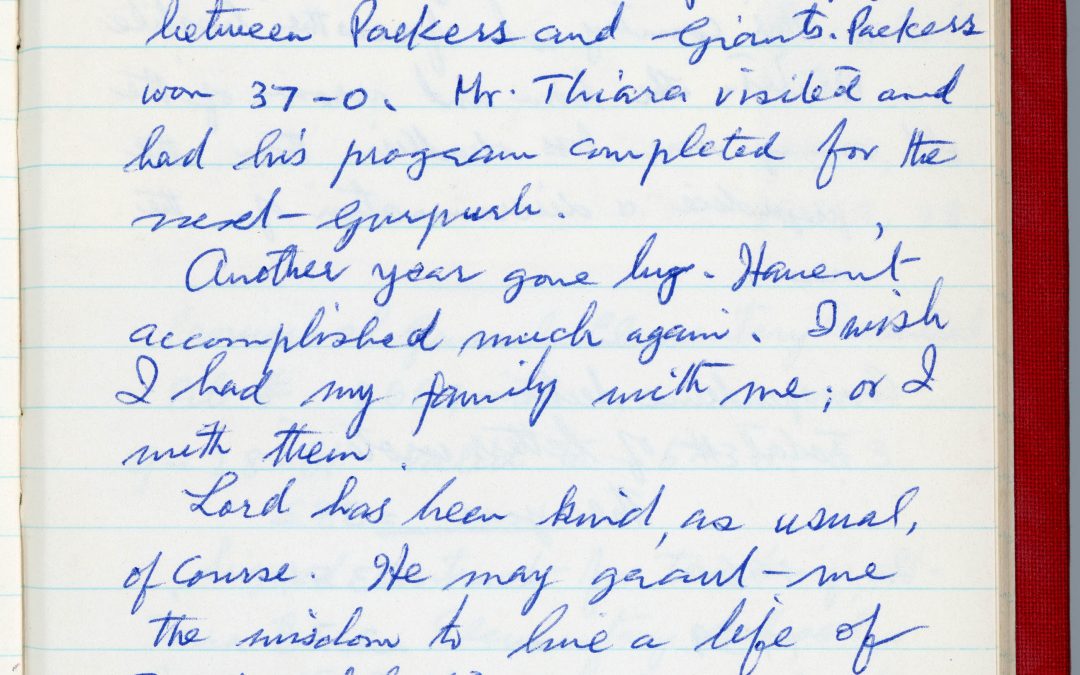 between Packers and Giants. Packers
won 37-0. Mr. Thiara visited and
had his program completed for the
next Gurpurb.
Another year gone by. Haven't
accomplished much again. I wish
I had my family with me; or I
with them.
Lord has been kind, as usual,
of course. He may grant me
the wisdom to live a life of